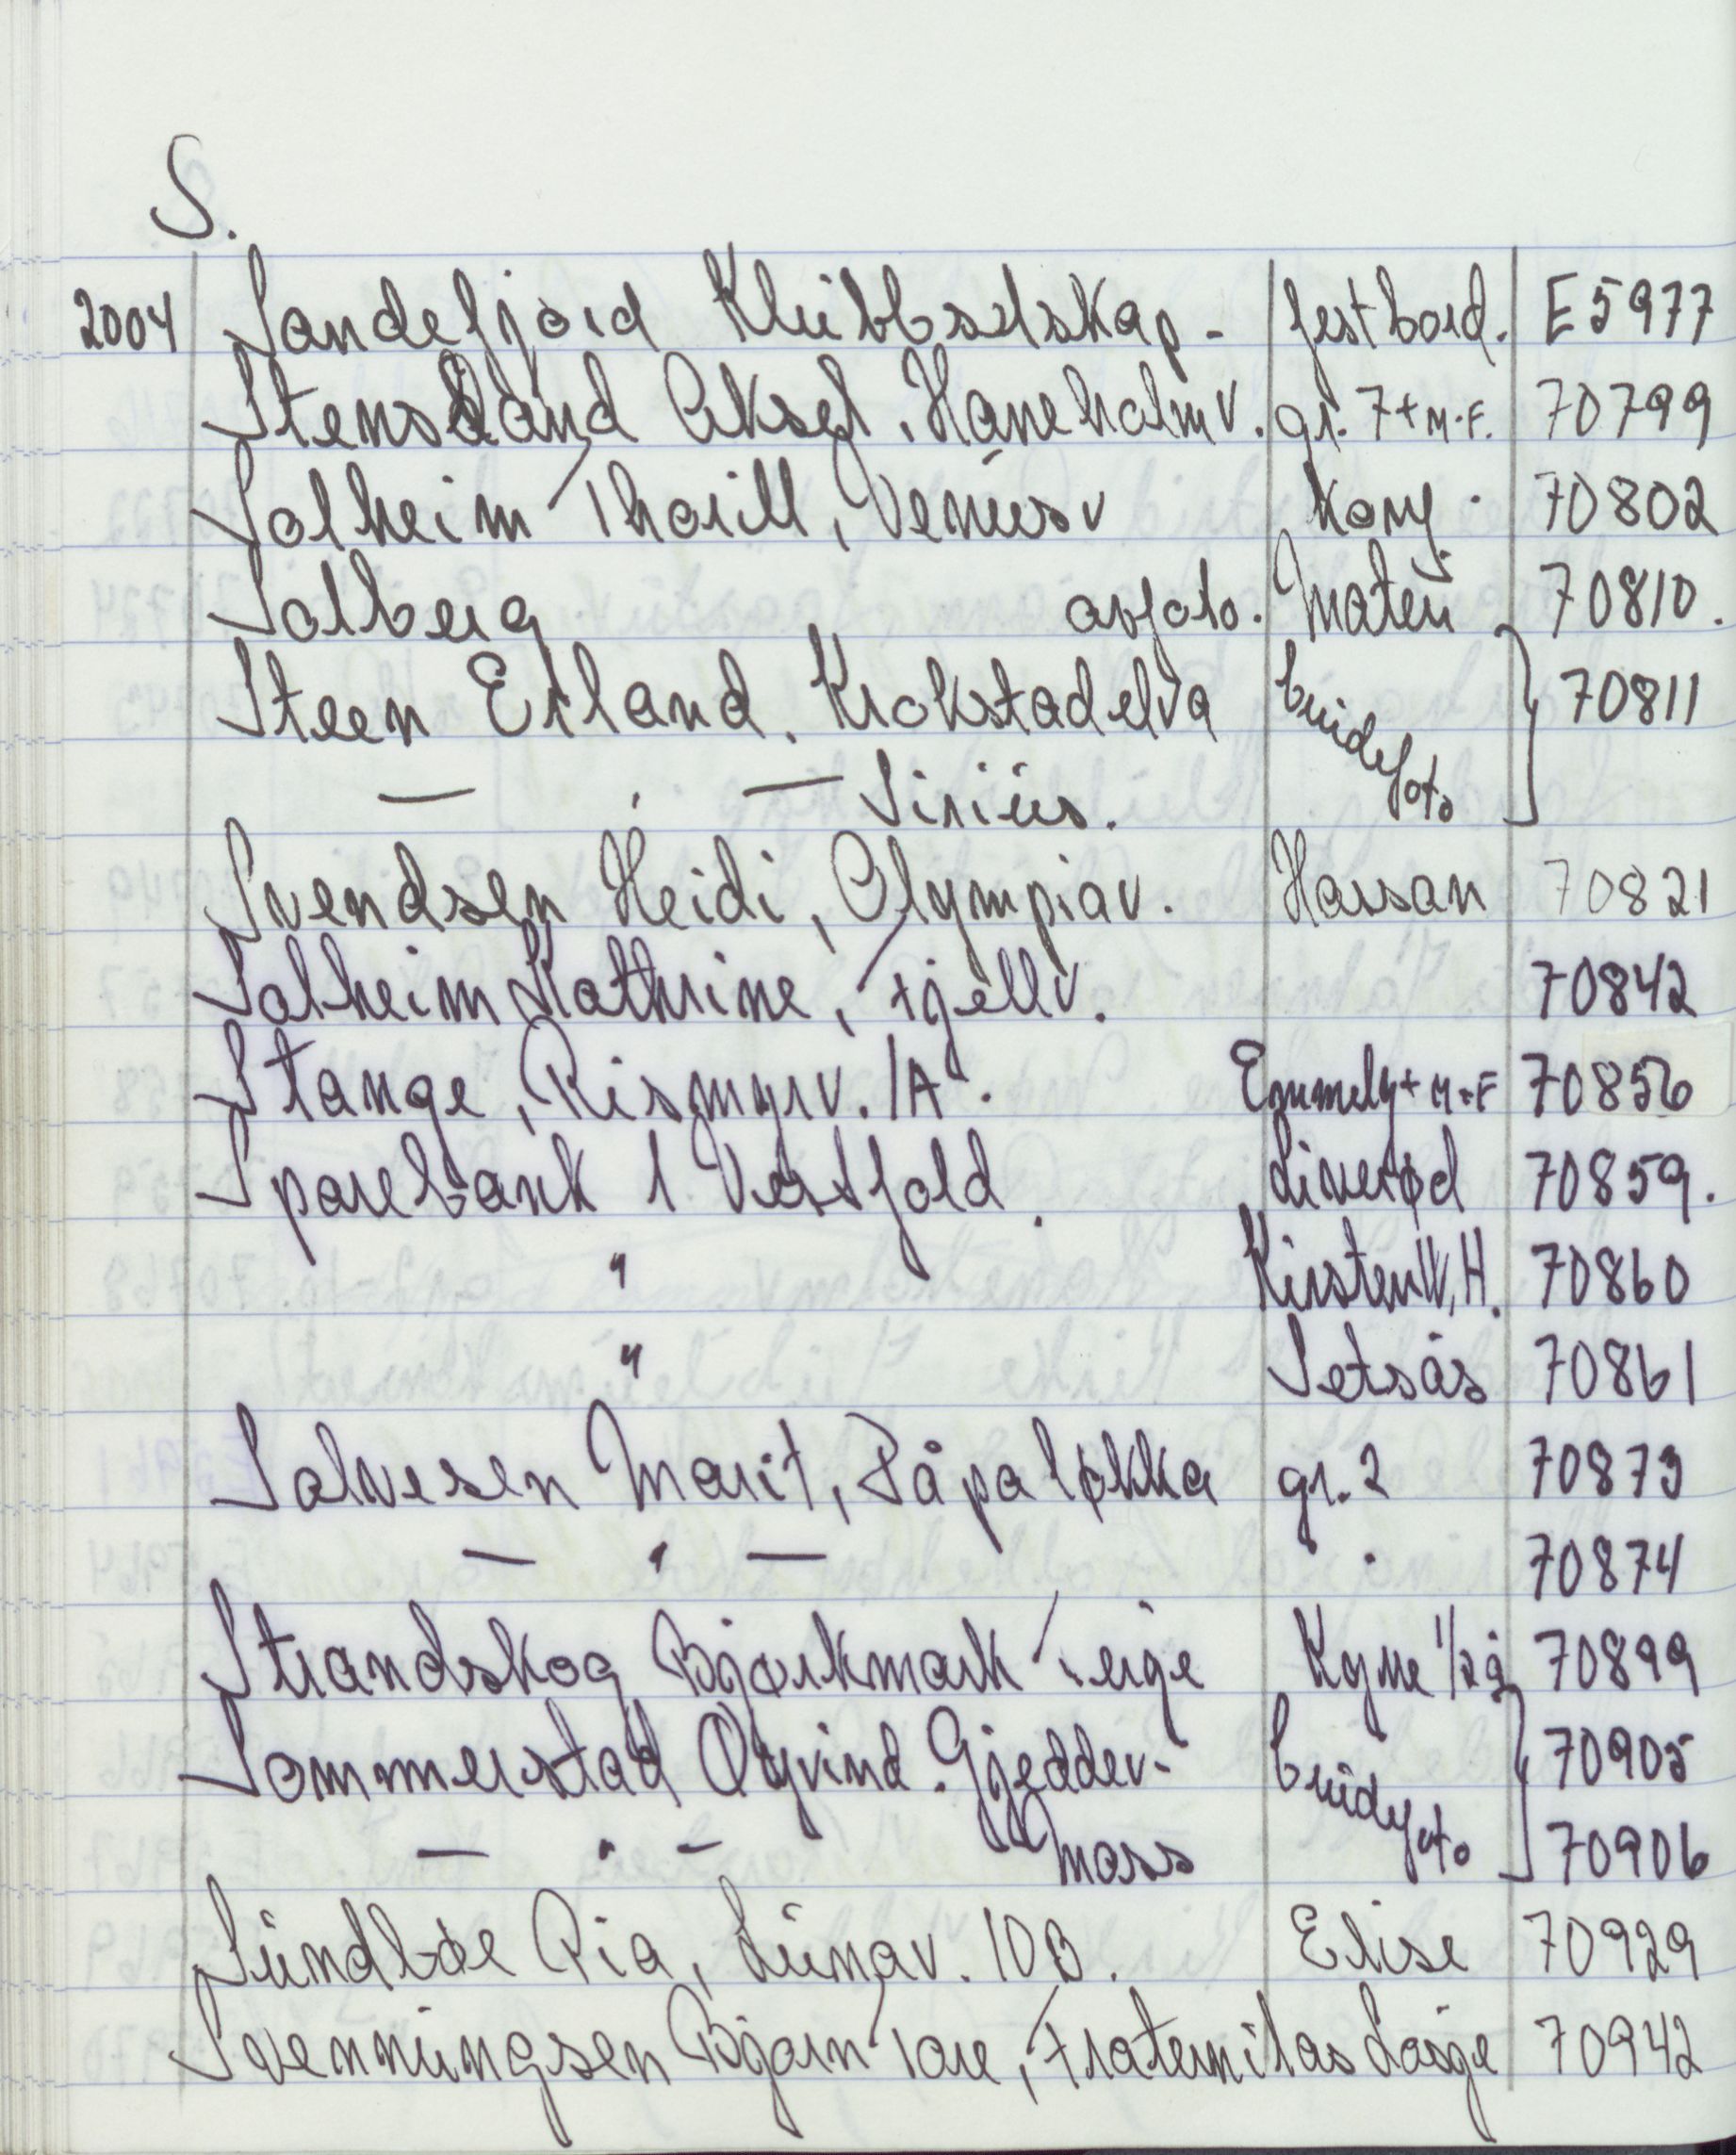 S.
2004 Sandefjord Klubbselskap - festbord. E 5977
Stensland Aksel, Haneholmv. gr. 7 + M.F. 70799
Solheim Thorill, Venusv konf. 70802
Solberg avfoto. Materi 70810.
Steen Erland. Krokstadelva brudefoto 70811
— , — Sirius.
Svendsen Heidi, Olympiav. Hassan 70821
Solheim Kathrine, Fjellv. 70842
Stange, Rismyrv. 1A. Emmely + M+F 70856
Sparebank 1 Vestfold. Liverød 70859.
" Kirsten W, H. 70860
" Setsås 70861
Salvesen Marit, Påpaløkka gr. 2 70873
— " — " 70874
Strandskog Bjørkmark Terje Kyrre 1/2 å 70899
Sommerstad Øyvind. Gjeddev. brudefoto 70905
— " — Moss 70906
Sundbøe Pia, Lunav. 10B. Elise 70929
Svenningsen Bjørn Tore, Fraternitas Losje 70942